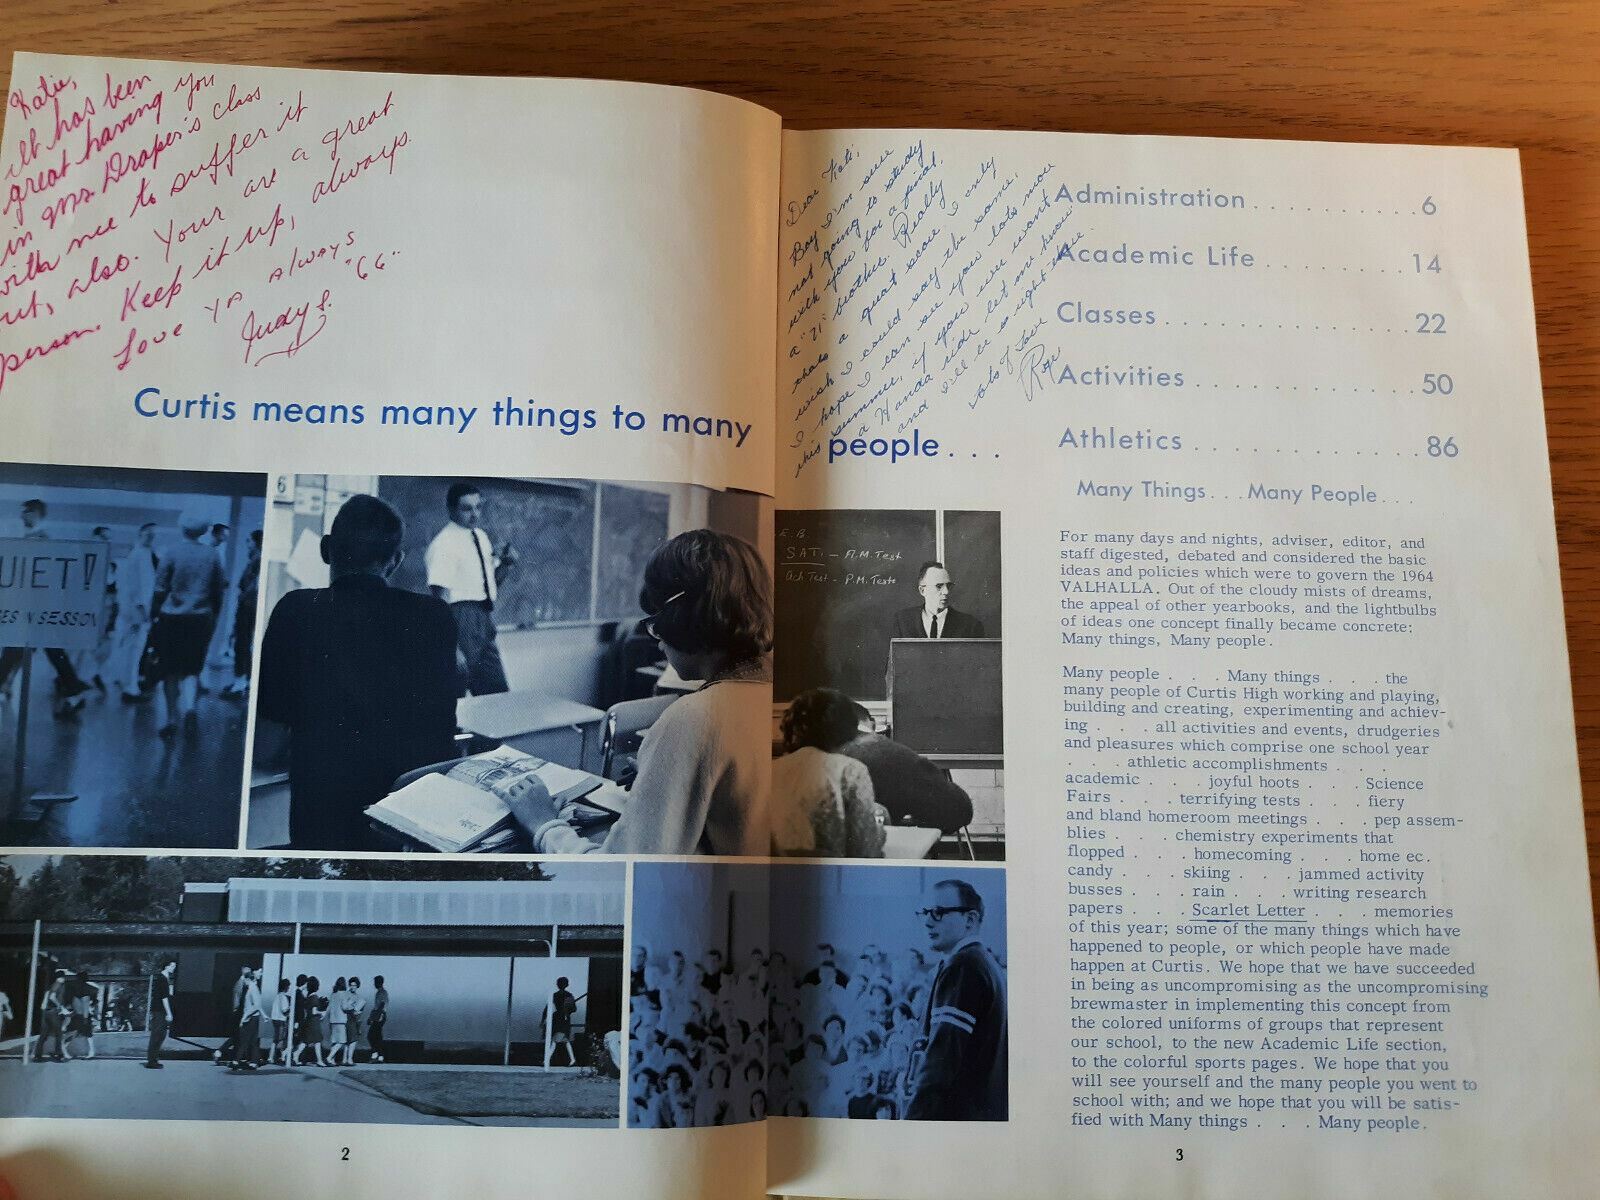 Katie,
It has been
great having you
in Mrs. Draper's class
with me to suffer it
out, also. Your are a great
person. Keep it up, always.
Love ya always
Judy S. "66"
Curtis means many things to many
people . . .
Dear Kati,
Boy I'm sure
not going to study
with you for a final.
a "71" brother. Really
thats a great score. I only
wish I could say the same,
I hope I can see you lots more
this summer, if you ever want
a Honda ride let me know
and I'll be right there.
Lots of Love
Administration . . . . . . . . . . 6
Academic Life . . . . . . . . 14
Classes . . . . . . . . . . . . . . 22
Activities . . . . . . . . . . . . 50
Athletics . . . . . . . . . . . . 86
Many Things . . . Many People . . .
For many days and nights, adviser, editor, and
staff digested, debated and considered the basic
ideas and policies which were to govern the 1964
VALHALLA. Out of the cloudy mists of dreams,
the appeal of other yearbooks, and the lightbulbs
of ideas one concept finally became concrete:
Many things, Many people.
Many people . . . Many things . . . the
many people of Curtis High working and playing,
building and creating, experimenting and achiev-
ing . . . all activities and events, drudgeries
and pleasures which comprise one school year
. . . athletic accomplishments . . .
academic . . . joyful hoots . . . Science
Fairs . . . terrifying tests . . . fiery
and bland homeroom meetings . . . pep assem-
blies . . . chemistry experiments that
flopped . . . homecoming . . . home ec.
candy . . . skiing . . . jammed activity
busses . . . rain . . . writing research
papers . . . Scarlet Letter . . . memories
of this year; some of the many things which have
happened to people, or which people have made
happen at Curtis. We hope that we have succeeded
in being as uncompromising as the uncompromising
brewmaster in implementing this concept from
the colored uniforms of groups that represent
our school, to the new Academic Life section,
to the colorful sports pages. We hope that you
will see yourself and the many people you went to
school with; and we hope that you will be satis-
fied with Many things . . . Many people.
UIET!
ES IN SESSON
6
E.B.
SAT. - A.M. Test
Ach Test - P.M. Tests
2
3